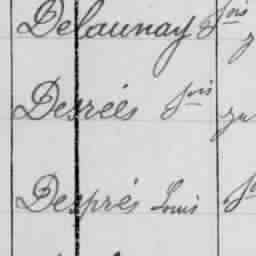 Delaunay fois
Desrées fois
Després Louis